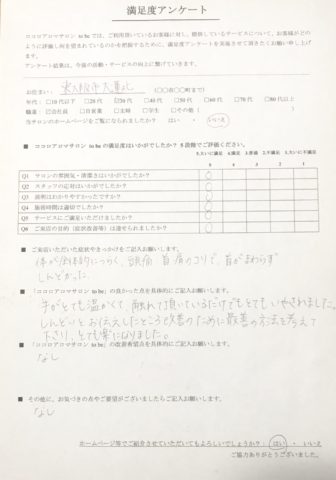 満足度アンケート
ココロアロマサロン to be では、ご利用頂いているお客様に対し、提供しているサービスについて、お客様がどの
ように評価し何を望まれているのかを把握するために、満足度アンケートを実施させて頂きたくお願い申し上げ
ます。
アンケート結果は、今後の活動・サービスの向上に繋げていきます。
お住まい: 東大阪市大蓮北 (○○市○○町まで)
年代: □10代以下 □20代 □30代 □40代 □50代 □60代 □70代 □80代以上
職業: □会社員 □自営業 □主婦 □学生 □その他( )
当サロンのホームページをご覧になられましたか? はい ・ いいえ
「ココロアロマサロン to be の満足度はいかがでしたか? 5段階でご評価ください。
5.大いに満足 4.満足 3.普通 2.不満足 1.大いに不満足
5 4 3 2 1
Q1 サロンの雰囲気・清潔さはいかがでしたか? ○
Q2 スタッフの応対はいかがでしたか? ○
Q3 説明はわかりやすかったですか? ○
Q4 施術時間は適切でしたか? ○
Q5 サービスにご満足いただけましたか? ○
Q6 ご来店の目的(症状改善等)は達せられましたか? ○
■ ご来店いただいた症状やきっかけをご記入お願いします。
体が全体的につらく、頭痛 首肩のコリで、首がまわらず
しんどかった。
■ 「ココロアロマサロン to be」の良かった点を具体的にご記入お願いします。
手がとても温かくて、触れて頂いているだけでもとてもいやされました。
しんどいとお伝えしたところ改善のために最善の方法を考えて
下さり、とても楽になりました。
■ 「ココロアロマサロン to be」の改善希望点を具体的にご記入お願いします。
なし
■ その他に、お気づきの点やご要望がございましたらご記入お願いします。
なし
ホームページ等でご紹介させていただいてもよろしいでしょうか?: はい ・ いいえ
ご協力ありがとうございました。